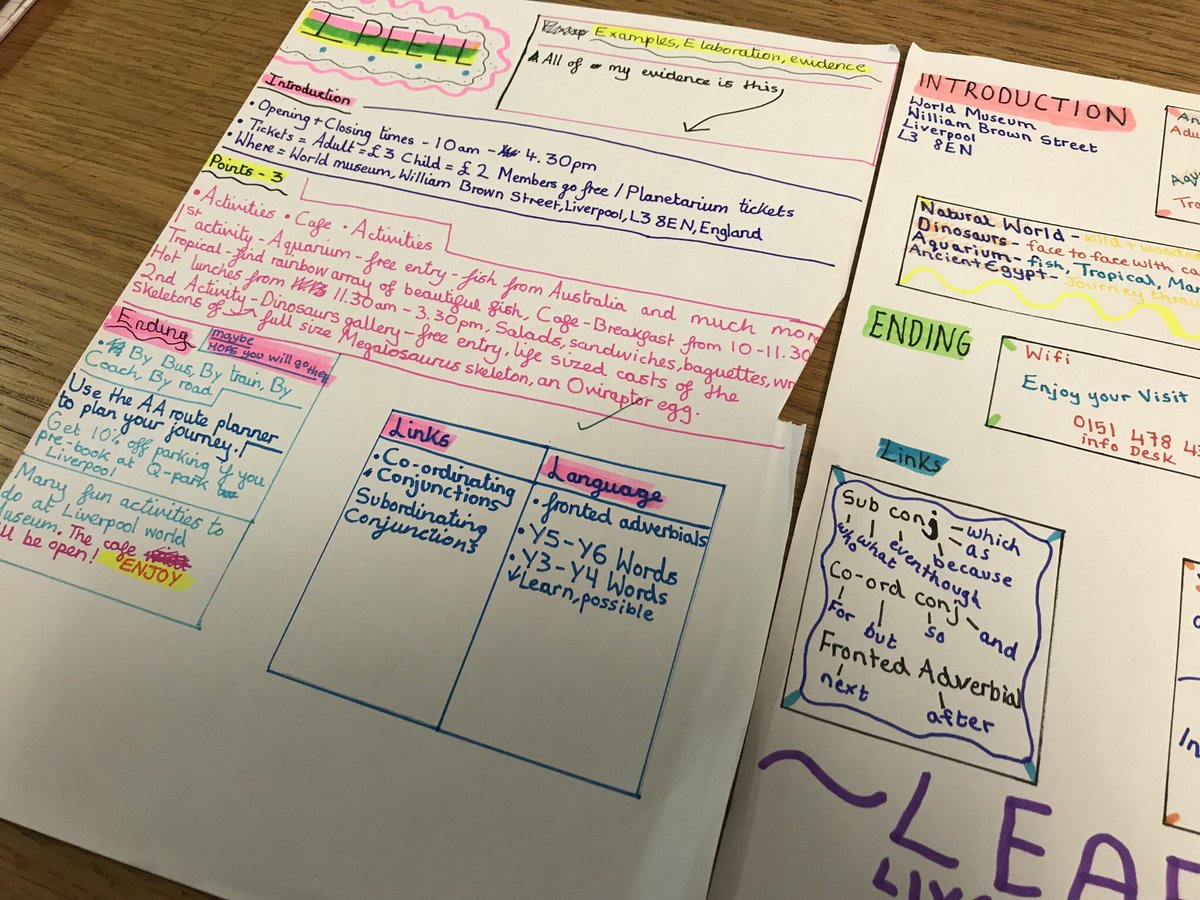 I PEELL
Examples, Elaboration, evidence
All of my evidence is this
Introduction
• Opening + Closing times - 10am - 4.30pm
• Tickets = Adult = £3 Child = £2 Members go free / Planetarium tickets
• Where = World museum, William Brown Street, Liverpool, L3 8EN, England
Points - 3
• Activities • Cafe • Activities
1st activity - Aquarium - free entry - fish from Australia and much more
Tropical - find rainbow array of beautiful fish, Cafe - Breakfast from 10 - 11.30
Hot lunches from 11.30am - 3.30pm, Salads, sandwiches, baguettes, wr
2nd Activity - Dinosaurs gallery - free entry, life sized casts of the
skeletons of full size Megalosaurus skeleton, an Oviraptor egg.
Ending
maybe
HOPE you will go there
• By Bus, By train, By
Coach, By road
Use the AA route planner
to plan your journey!
Get 10% off parking if you
pre-book at Q-park
Liverpool
Many fun activities to
do at Liverpool world
museum. The cafe
ll be open! ENJOY
Links
• Co-ordinating
• Conjunctions
Subordinating
Conjunctions
Language
• fronted adverbials
• Y5-Y6 Words
• Y3-Y4 Words
Learn, possible
INTRODUCTION
World Museum
William Brown Street
Liverpool
L3 8EN
An
Adu
Tro
Natural World - wild + wooded
Dinosaurs - face to face with ca
Aquarium - fish, Tropical, Mar
Ancient Egypt - Journey thro
ENDING
Wifi
Enjoy your Visit
0151 478 43
info Desk
Links
Sub conj - which
as
who what eventhough because
Co-ord conj
For but so and
Fronted Adverbial
next after
~LEA
LIV
In